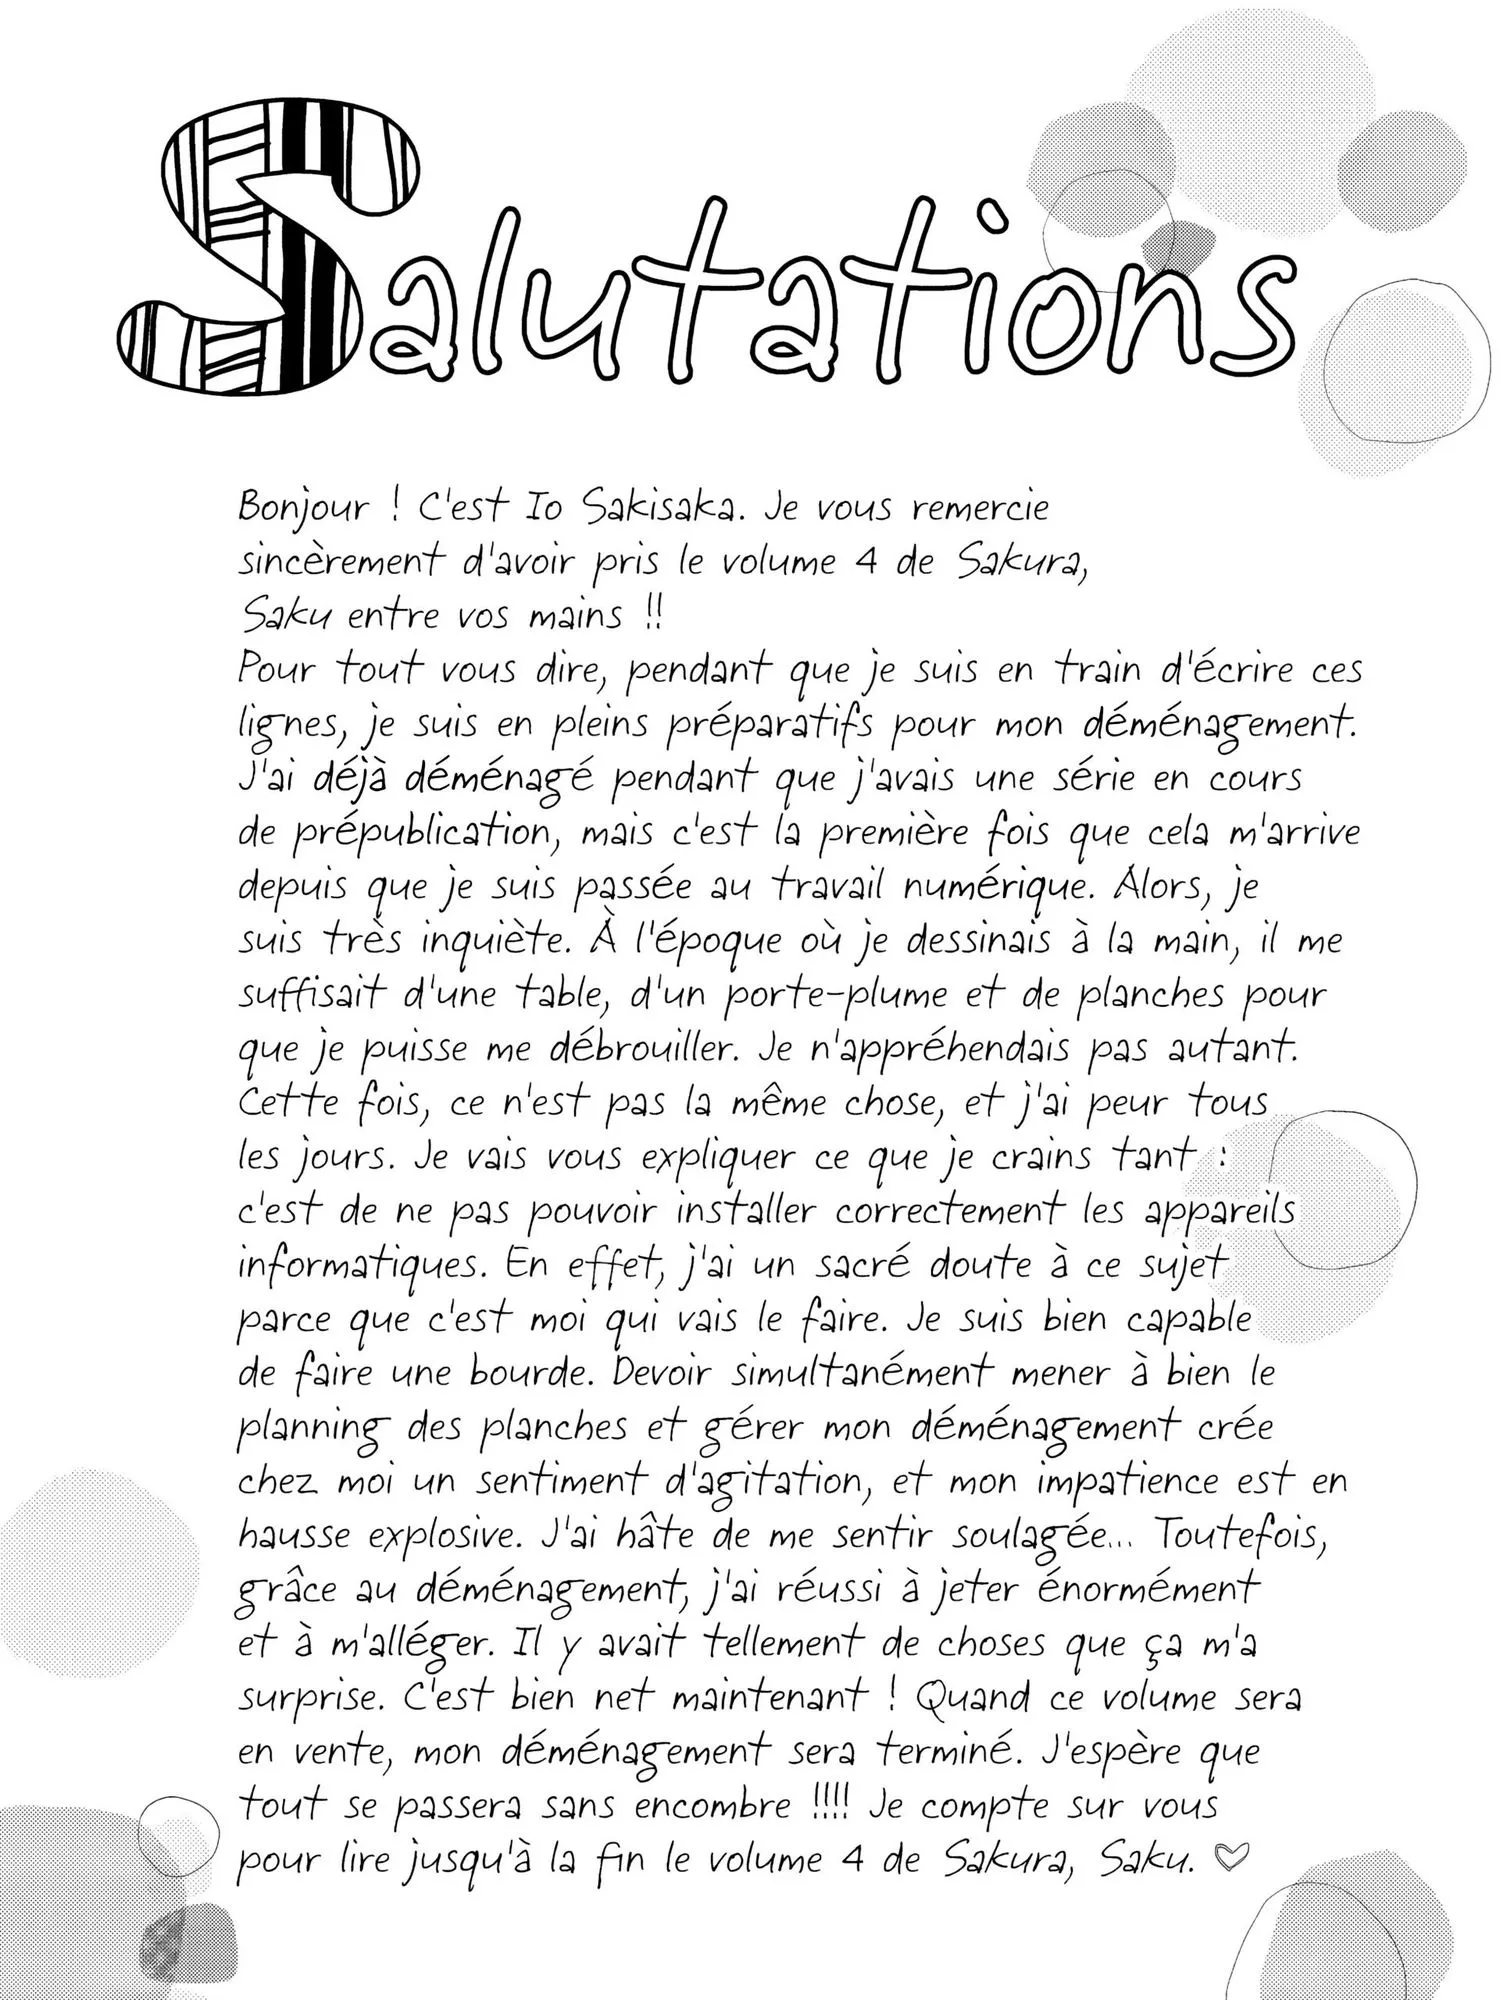 Salutations
Bonjour ! C'est Io Sakisaka. Je vous remercie
sincèrement d'avoir pris le volume 4 de Sakura,
Saku entre vos mains !!
Pour tout vous dire, pendant que je suis en train d'écrire ces
lignes, je suis en pleins préparatifs pour mon déménagement.
J'ai déjà déménagé pendant que j'avais une série en cours
de prépublication, mais c'est la première fois que cela m'arrive
depuis que je suis passée au travail numérique. Alors, je
suis très inquiète. À l'époque où je dessinais à la main, il me
suffisait d'une table, d'un porte-plume et de planches pour
que je puisse me débrouiller. Je n'appréhendais pas autant.
Cette fois, ce n'est pas la même chose, et j'ai peur tous
les jours. Je vais vous expliquer ce que je crains tant :
c'est de ne pas pouvoir installer correctement les appareils
informatiques. En effet, j'ai un sacré doute à ce sujet
parce que c'est moi qui vais le faire. Je suis bien capable
de faire une bourde. Devoir simultanément mener à bien le
planning des planches et gérer mon déménagement crée
chez moi un sentiment d'agitation, et mon impatience est en
hausse explosive. J'ai hâte de me sentir soulagée... Toutefois,
grâce au déménagement, j'ai réussi à jeter énormément
et à m'alléger. Il y avait tellement de choses que ça m'a
surprise. C'est bien net maintenant ! Quand ce volume sera
en vente, mon déménagement sera terminé. J'espère que
tout se passera sans encombre !!!! Je compte sur vous
pour lire jusqu'à la fin le volume 4 de Sakura, Saku. ♡